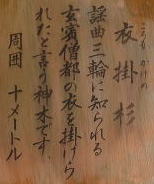 衣掛杉
ころもがけの
謡曲三輪に知られる
玄賓僧都の衣を掛けら
れたと言う神木です。
周囲 十メートル